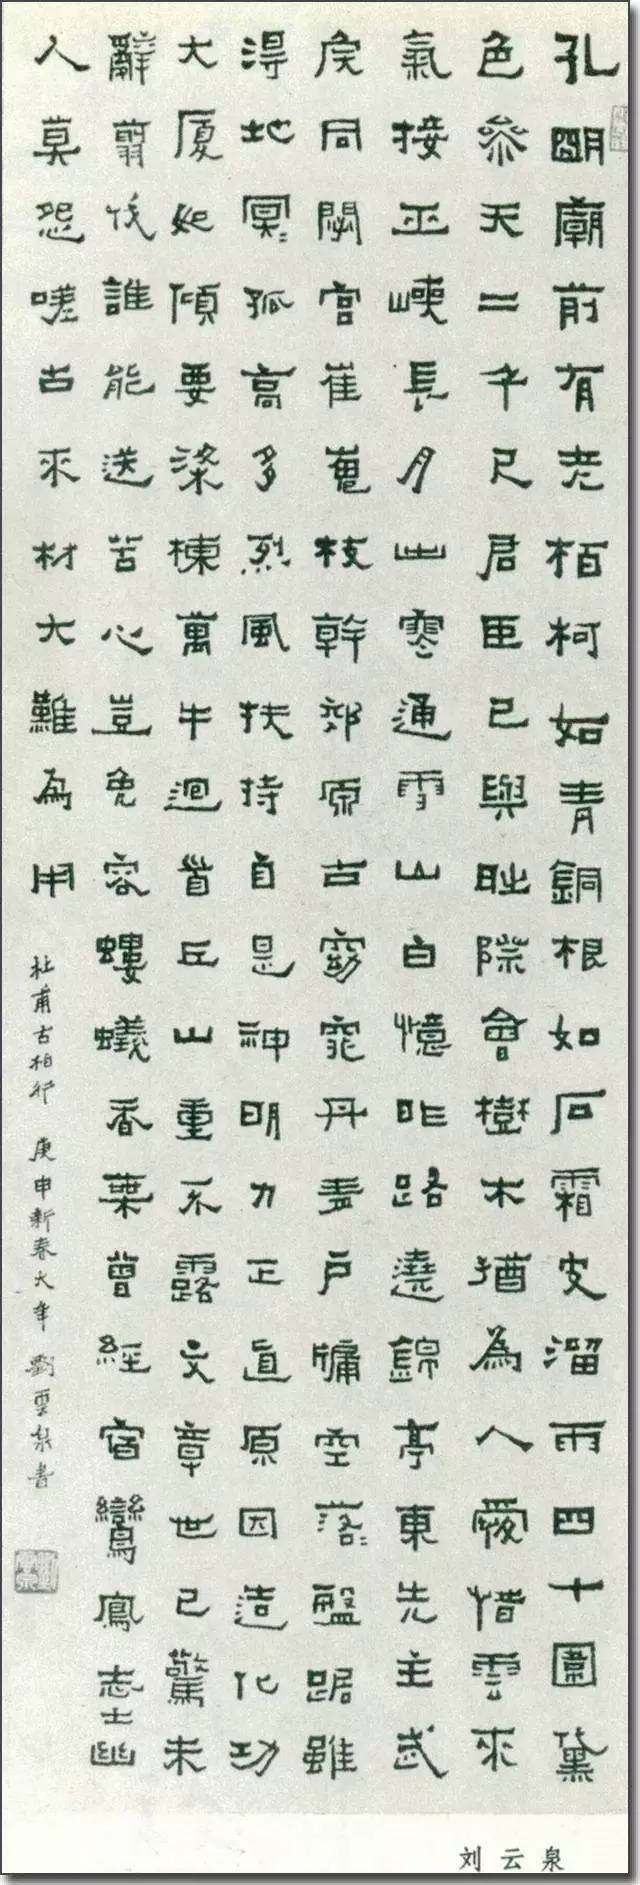 孔明廟前有老柏柯如青銅根如石霜皮溜雨四十圍黛
色參天二千尺君臣已與時際會樹木猶為人愛惜雲來
氣接巫峽長月出寒通雪山白憶昨路遶錦亭東先主武
侯同閟宮崔嵬枝幹郊原古窈窕丹青戶牖空落〻盤踞雖
得地冥〻孤高多烈風扶持自是神明力正直原因造化功
大廈如傾要梁棟萬牛迴首丘山重不露文章世已驚未
辭翦伐誰能送苦心豈免容螻蟻香葉曾經宿鸞鳳志士幽
人莫怨嗟古來材大難為用
杜甫古柏行 庚申新春大年 劉雲泉書
刘云泉